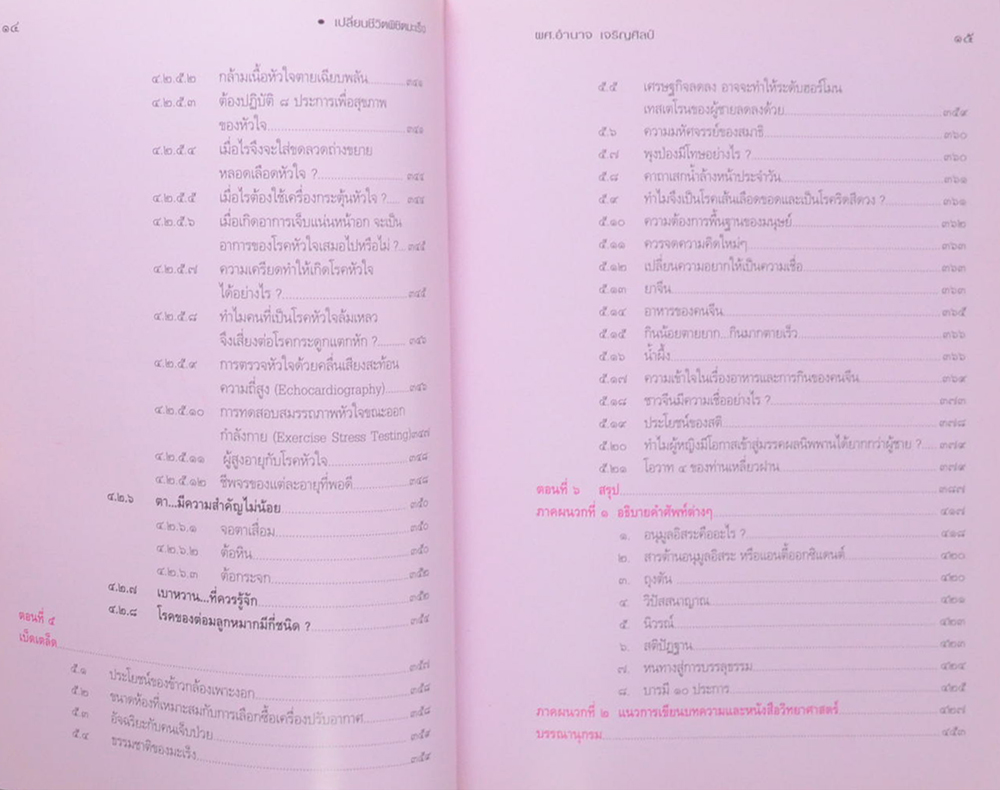 ๑๔ • เปลี่ยนชีวิตพิชิตมะเร็ง
๔.๒.๕.๒ กล้ามเนื้อหัวใจตายเฉียบพลัน
๔.๒.๕.๓ ต้องปฏิบัติ ๘ ประการเพื่อสุขภาพ
ของหัวใจ
๔.๒.๕.๔ เมื่อไรจึงจะใส่ขดลวดถ่างขยาย
หลอดเลือดหัวใจ ?
๔.๒.๕.๕ เมื่อไรต้องใช้เครื่องกระตุ้นหัวใจ ?
๔.๒.๕.๖ เมื่อเกิดอาการเจ็บแน่นหน้าอก จะเป็น
อาการของโรคหัวใจเสมอไปหรือไม่ ? ๓๔๕
๔.๒.๕.๗ ความเครียดทำให้เกิดโรคหัวใจ
ได้อย่างไร ? ๓๔๕
๔.๒.๕.๘ ทำไมคนที่เป็นโรคหัวใจล้มเหลว
จึงเสี่ยงต่อโรคกระดูกแตกหัก ? ๓๔๖
๔.๒.๕.๙ การตรวจหัวใจด้วยคลื่นเสียงสะท้อน
ความถี่สูง (Echocardiography) ๓๔๖
๔.๒.๕.๑๐ การทดสอบสมรรถภาพหัวใจขณะออก
กำลังกาย (Exercise Stress Testing) ๓๔๗
๔.๒.๕.๑๑ ผู้สูงอายุกับโรคหัวใจ ๓๔๘
๔.๒.๕.๑๒ ชีพจรของแต่ละอายุที่พอดี ๓๔๘
๔.๒.๖ ตา...มีความสำคัญไม่น้อย ๓๕๐
๔.๒.๖.๑ จอตาเสื่อม ๓๕๐
๔.๒.๖.๒ ต้อหิน ๓๕๐
๔.๒.๖.๓ ต้อกระจก ๓๕๒
๔.๒.๗ เบาหวาน...ที่ควรรู้จัก ๓๕๒
๔.๒.๘ โรคของต่อมลูกหมากมีกี่ชนิด ? ๓๕๔
ตอนที่ ๕
เบ็ดเตล็ด ๓๕๗
๕.๑ ประโยชน์ของข้าวกล้องเพาะงอก ๓๕๘
๕.๒ ขนาดห้องที่เหมาะสมกับการเลือกซื้อเครื่องปรับอากาศ ๓๕๘
๕.๓ อัจฉริยะกับคนเจ็บป่วย ๓๕๙
๕.๔ ธรรมชาติของมะเร็ง ๓๕๙
ผศ.อำนาจ เจริญศิลป์ ๑๕
๕.๕ เศรษฐกิจลดลง อาจจะทำให้ระดับฮอร์โมน
เทสเตโรนของผู้ชายลดลงด้วย ๓๕๙
๕.๖ ความมหัศจรรย์ของสมาธิ ๓๖๐
๕.๗ พุงป่องมีโทษอย่างไร ? ๓๖๐
๕.๘ คาถาเสกน้ำล้างหน้าประจำวัน ๓๖๑
๕.๙ ทำไมจึงเป็นโรคเส้นเลือดขอดและเป็นโรคริดสีดวง ? ๓๖๑
๕.๑๐ ความต้องการพื้นฐานของมนุษย์ ๓๖๒
๕.๑๑ ควรจดความคิดใหม่ๆ ๓๖๓
๕.๑๒ เปลี่ยนความอยากให้เป็นความเชื่อ ๓๖๓
๕.๑๓ ยาจีน ๓๖๓
๕.๑๔ อาหารของคนจีน ๓๖๕
๕.๑๕ กินน้อยตายยาก...กินมากตายเร็ว ๓๖๖
๕.๑๖ น้ำผึ้ง ๓๖๖
๕.๑๗ ความเข้าใจในเรื่องอาหารและการกินของคนจีน ๓๖๙
๕.๑๘ ชาวจีนมีความเชื่ออย่างไร ? ๓๗๓
๕.๑๙ ประโยชน์ของสติ ๓๗๘
๕.๒๐ ทำไมผู้หญิงมีโอกาสเข้าสู่มรรคผลนิพพานได้ยากกว่าผู้ชาย ? ๓๗๙
๕.๒๑ โอวาท ๔ ของท่านเหลี่ยวฝาน ๓๗๙
ตอนที่ ๖ สรุป ๓๘๗
ภาคผนวกที่ ๑ อธิบายคำศัพท์ต่างๆ ๔๑๗
๑. อนุมูลอิสระคืออะไร ? ๔๑๘
๒. สารต้านอนุมูลอิสระ หรือแอนตี้ออกซิแดนต์ ๔๒๐
๓. ถุงตัน ๔๒๐
๔. วิปัสสนาญาณ ๔๒๑
๕. นิวรณ์ ๔๒๓
๖. สติปัฏฐาน ๔๒๓
๗. หนทางสู่การบรรลุธรรม ๔๒๔
๘. บารมี ๑๐ ประการ ๔๒๕
ภาคผนวกที่ ๒ แนวการเขียนบทความและหนังสือวิทยาศาสตร์ ๔๒๗
บรรณานุกรม ๔๕๓